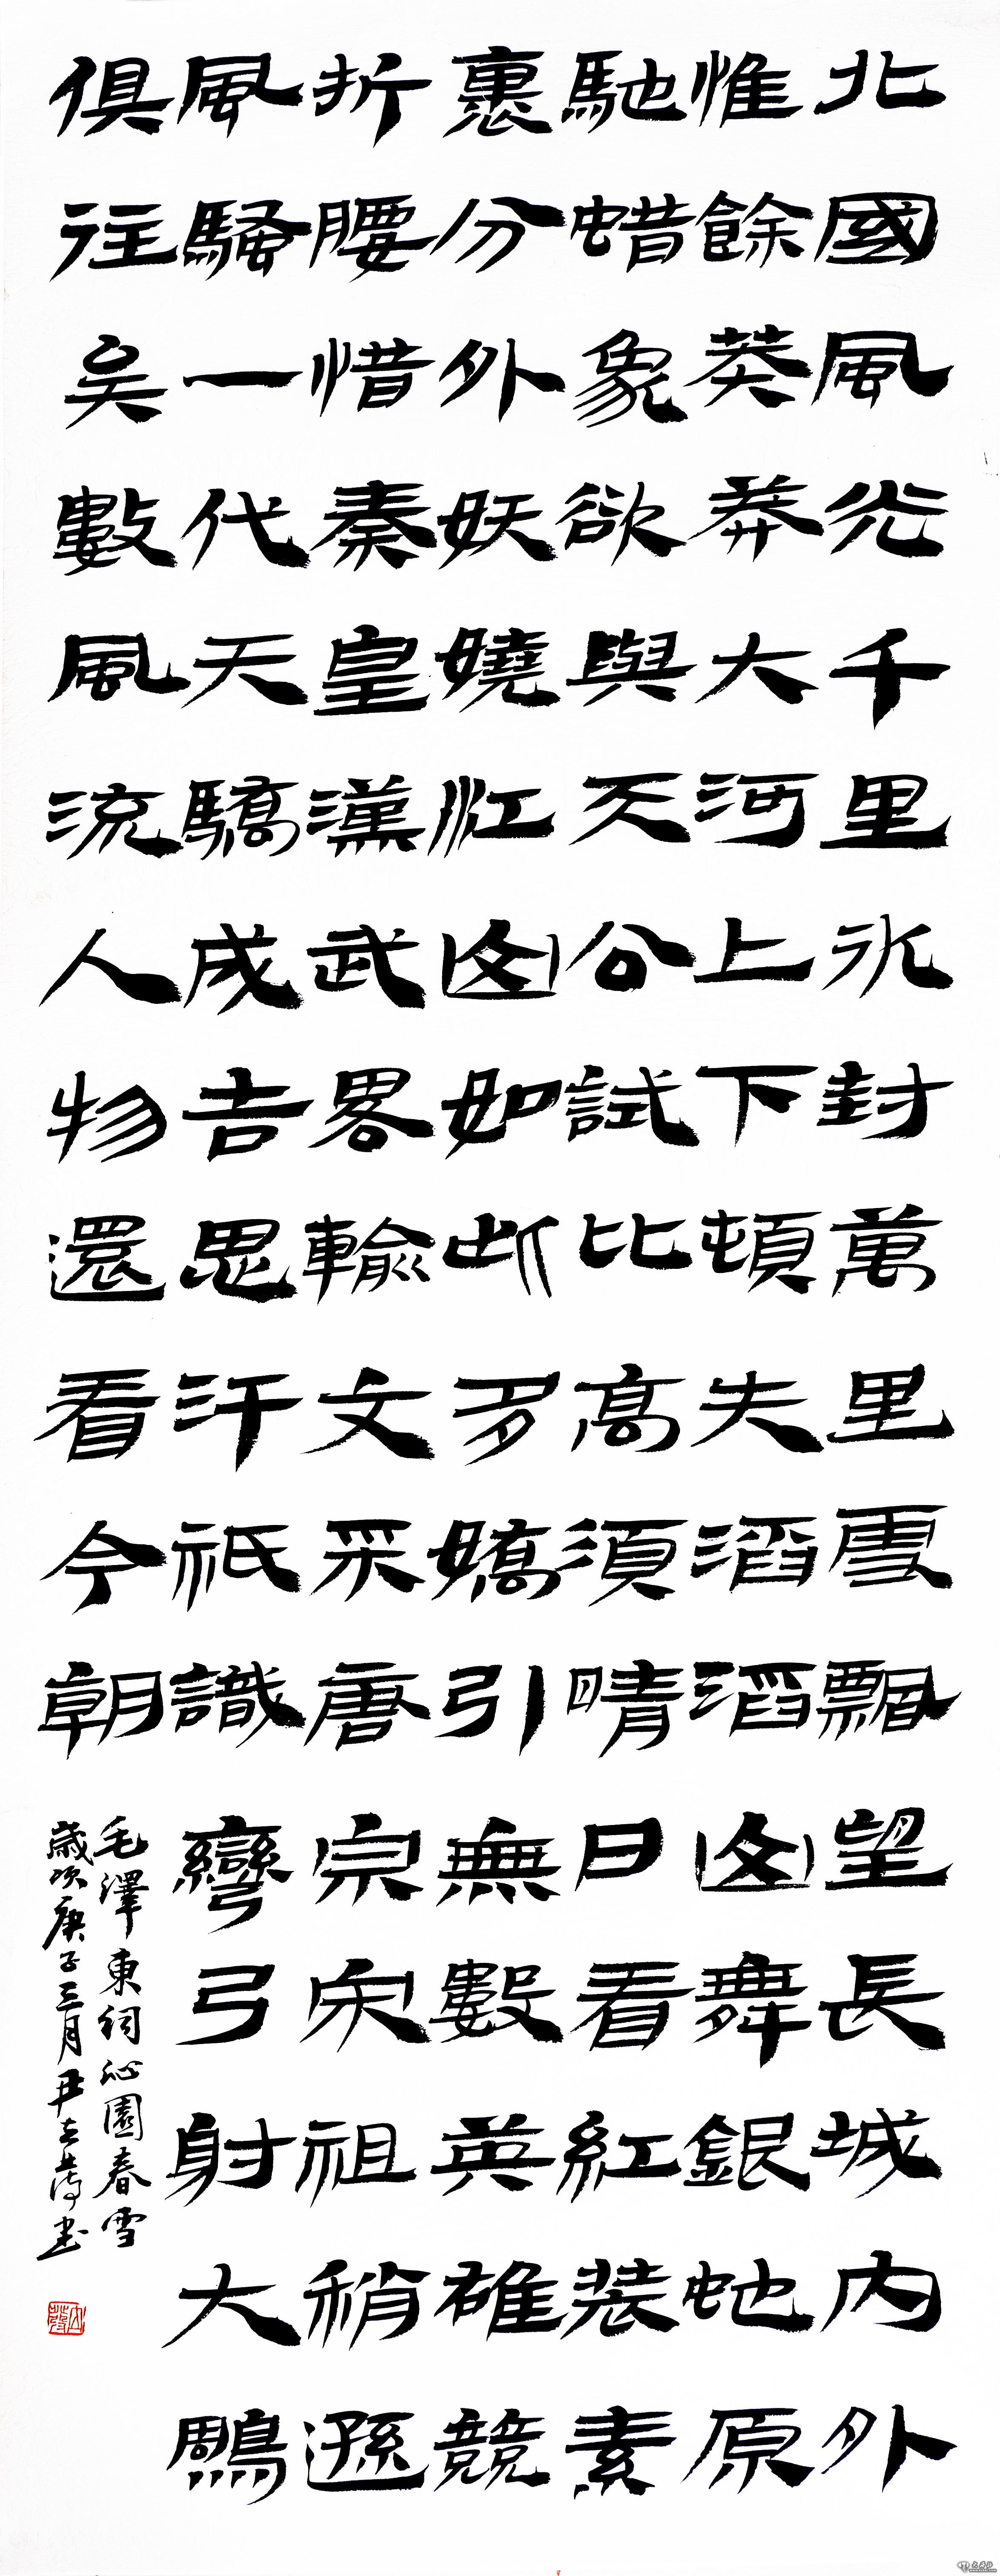 北國風光千里冰封萬里雪飄望長城内外
惟餘莽莽大河上下頓失滔滔山舞銀虵原
馳蜡象欲與天公試比高須晴日看紅装素
裹分外妖嬈江山如此多嬌引無數英雄競
折腰惜秦皇漢武畧輸文采唐宗宋祖稍遜
風騷一代天驕成吉思汗祇識彎弓射大鵰
俱往矣數風流人物還看今朝
毛澤東詞沁園春雪
歲次庚子三月尹書